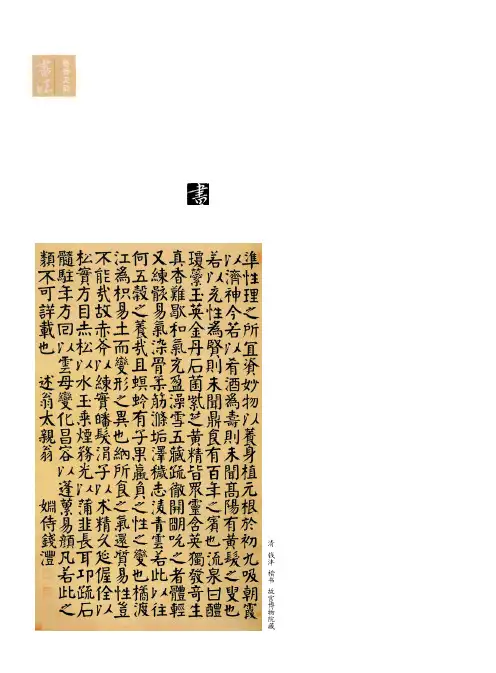 書
準性理之所宜資妙物以養身植元根於初九吸朝霞
以濟神今若以肴酒為壽則未聞高陽有黃髮之叟也
若以充性為賢則未聞鼎食有百年之賓也流泉曰醴
瓊蘂玉英金丹石菌紫芝黃精皆眾靈含英獨發奇生
真香難歇和氣充盈澡雪五藏疏徹開朗吮之者體輕
又練骸易氣染骨柔筋滌垢澤穢志凌青雲若此以往
何五穀之養哉且螟蛉有子果蠃負之性之變也橘渡
江為枳易土而變形之異也納所食之氣還質易性豈
不能哉故赤斧以練實皤髮涓子以术精久延偓佺以
松實方目赤松以水玉乘煙務光以蒲韭長耳邛疏石
髓駐年方回以雲母變化昌容以蓬蔂易顏凡若此之
類不可詳載也 述翁太親翁 姻侍錢灃
清 钱沣 楷书 故宫博物院藏